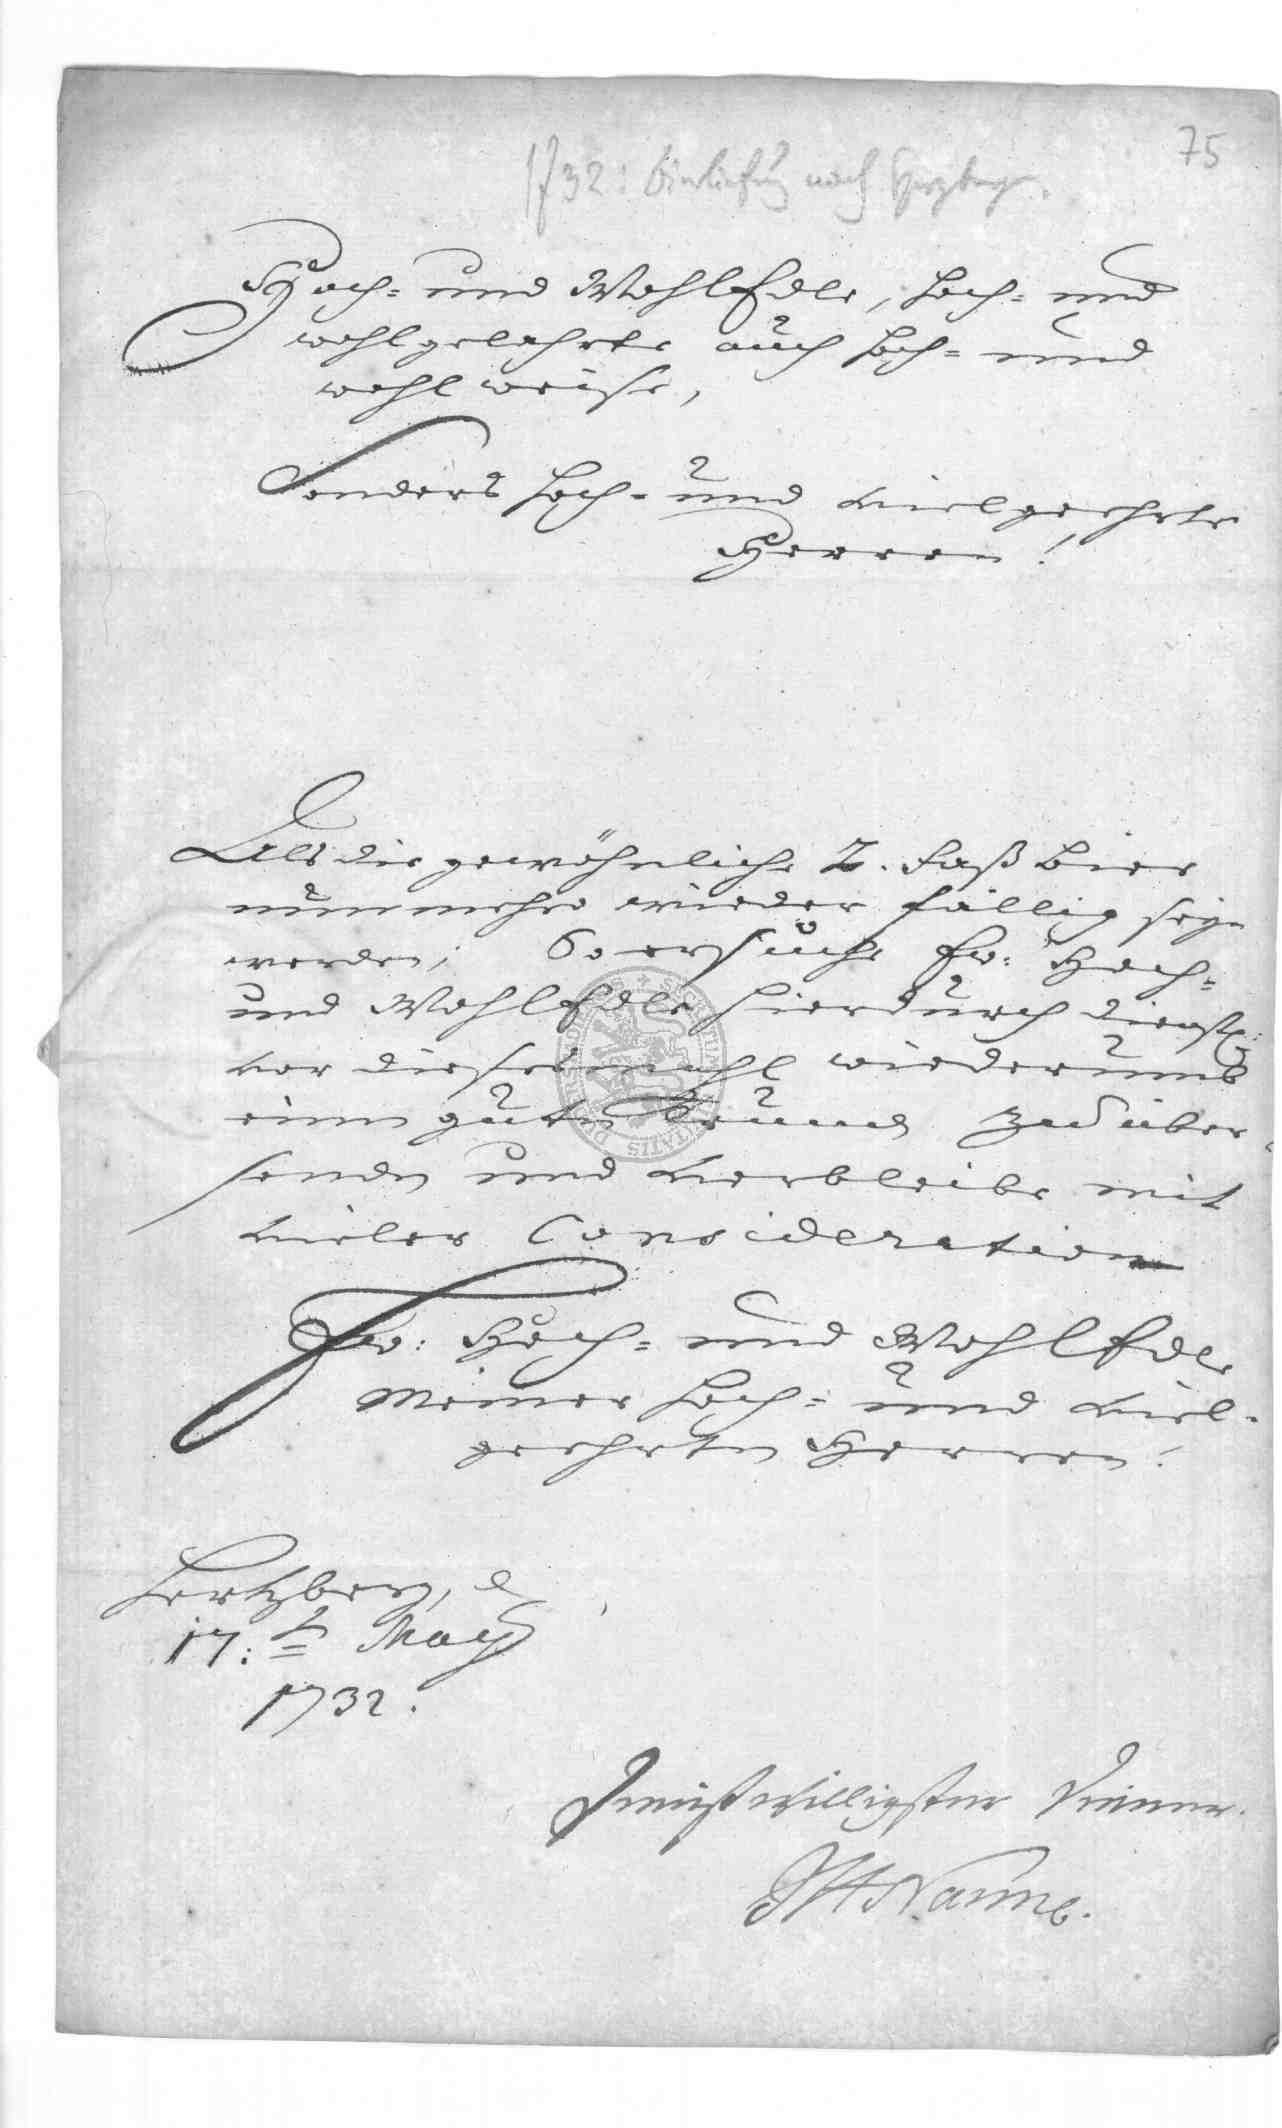 75
1732: Bierlieferung nach Herzberg.
Hoch- und WohlEdle, hoch- und
wohlgelahrte auch hoch- und
wohlweise,
Sonders hoch- und vielgeehrte
Herren!
Als die gewöhnliche 2. Faß Bier
nunmehro wieder fällig seyn
werden; So ersuche Ew: Hoch-
und WohlEdle hierdurch dienstl:
vor dieses mahl wiederumb
einen guten Trunck zu über-
senden und verbleibe mit
vieler Consideration
Ew: Hoch- und WohlEdle
Meiner hoch- und viel-
geehrten Herren!
Hertzberg, d
17: May
1732.
Dienstwilligster Diener.